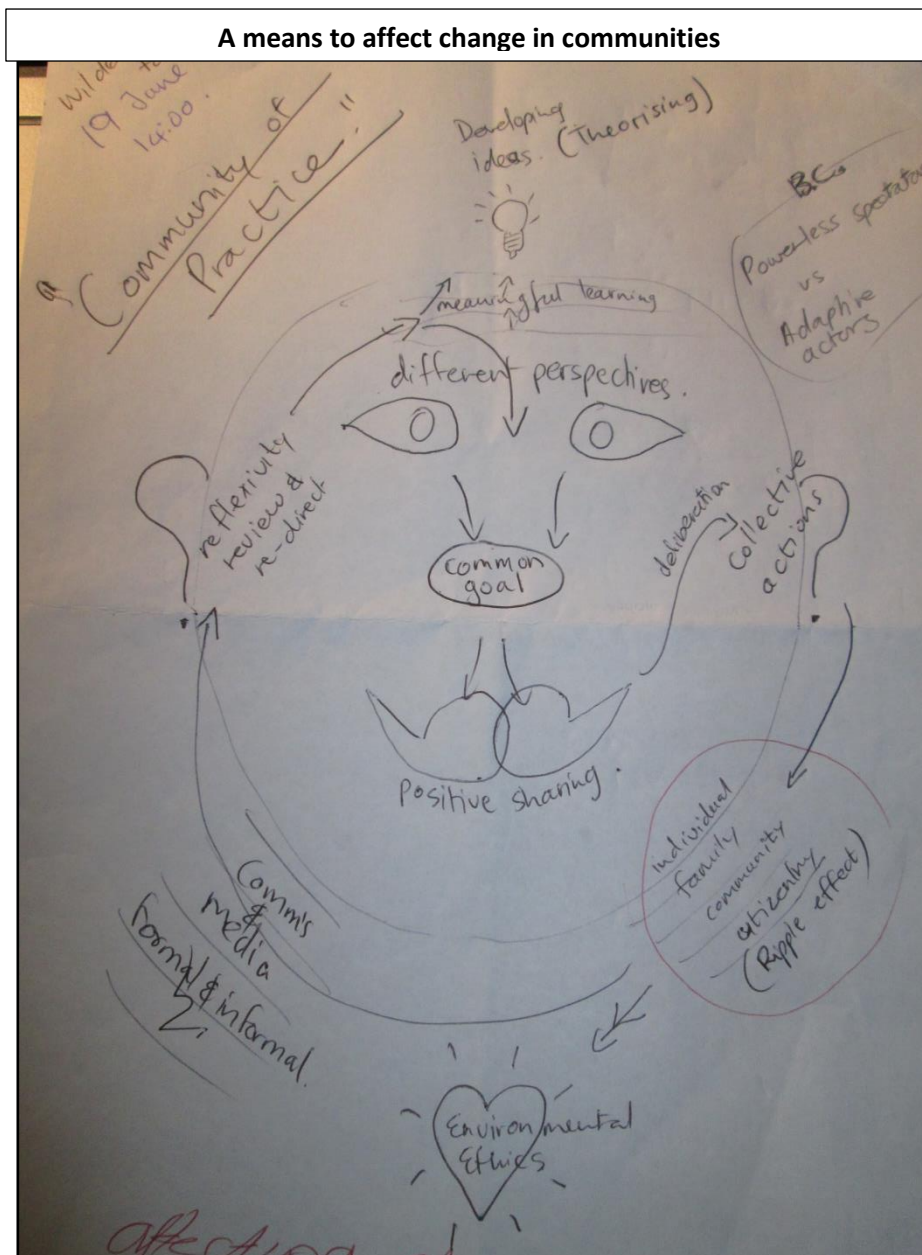 A means to affect change in communities
19 June
14:00.
"Community of
Practice."
Developing
ideas. (Theorising)
B.Co
Powerless spectator
vs
Adaptive
actors
meaningful learning
different perspectives.
reflexivity
review &
re-direct
common
goal
deliberation
collective
actions
Positive sharing.
individual
family
community
citizenry
(Ripple effect)
Comm's
&
media
formal & informal.
Environmental
Ethics
affecting